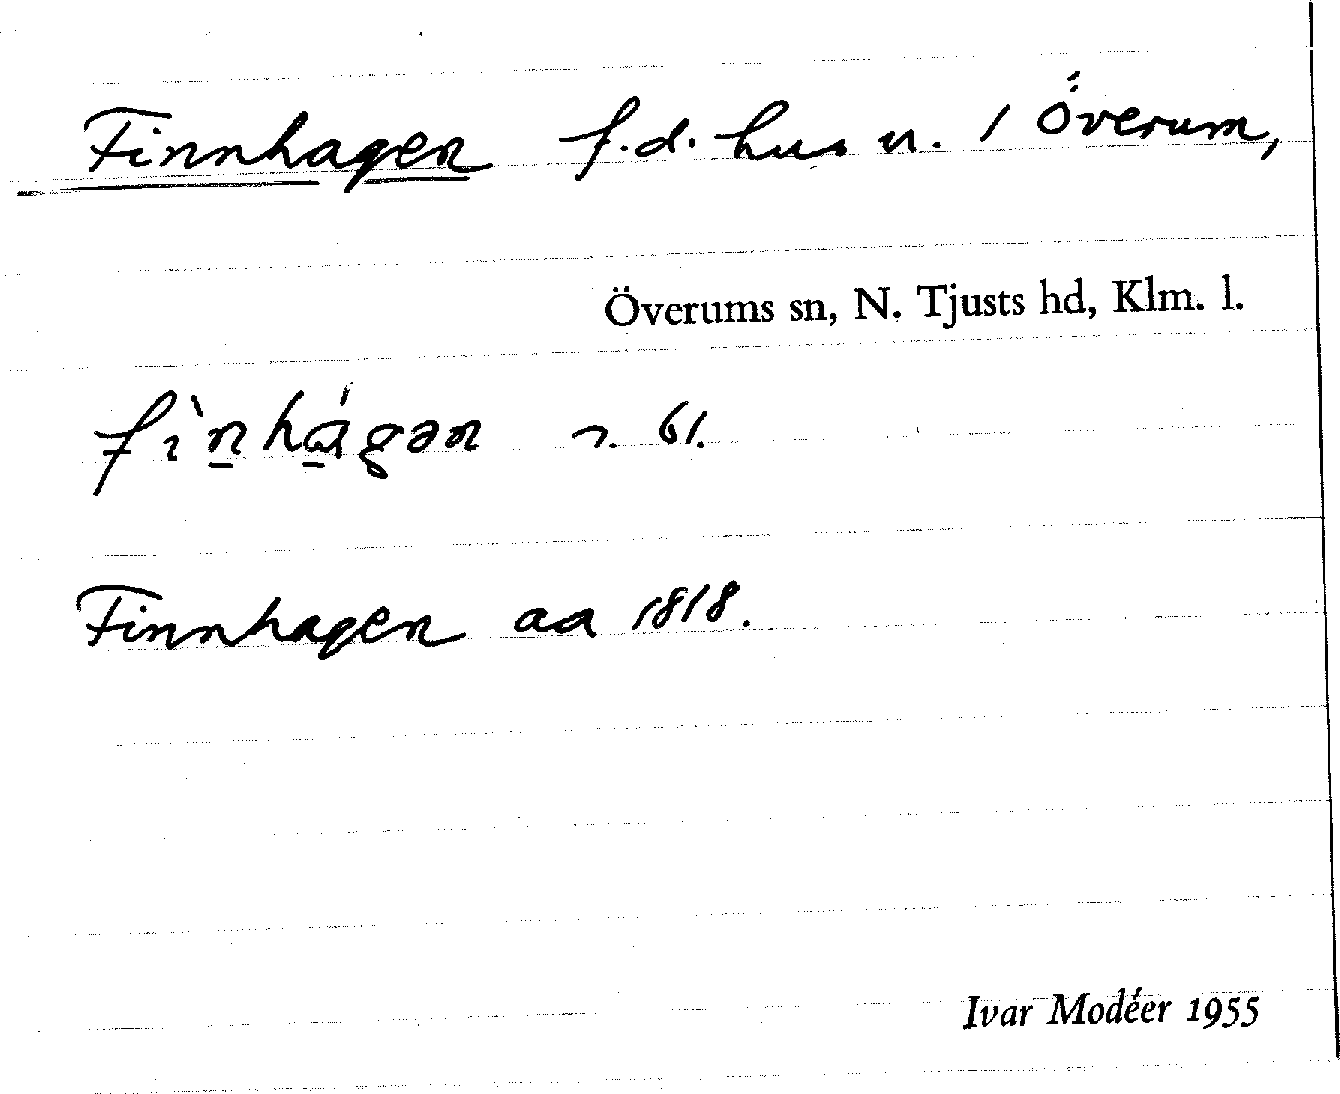 Finnhagen f.d. hus u. 1 Överum,
Överums sn, N. Tjusts hd, Klm. l.
fı̀n̲hά̲gən n. 61.
Finnhagen aa 1818.
Ivar Modéer 1955